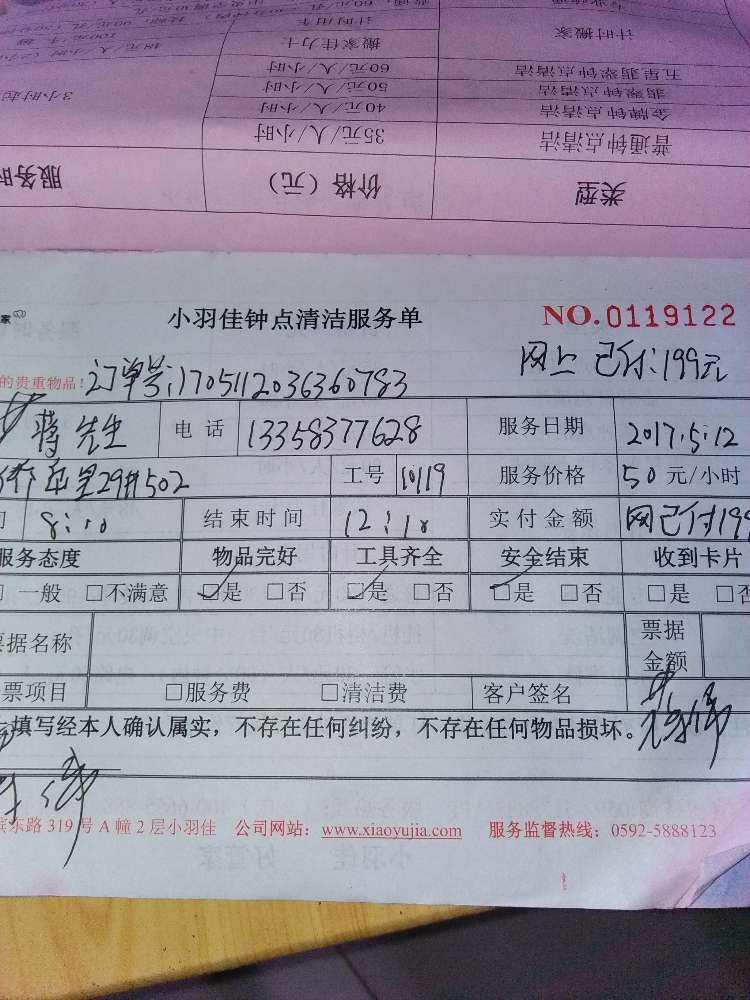 计时搬家 搬家佳力卡 计时用卡
五星翡翠钟点清洁 60元/人/小时
翡翠钟点清洁 50元/人/小时
金牌钟点清洁 40元/人/小时 3小时起
普通钟点清洁 35元/人/小时
类型 价格（元） 服务时
家 小羽佳钟点清洁服务单 NO.0119122
的贵重物品！订单号:1705112036360783 网上已付:199元
蒋先生 电话 13358377628 服务日期 2017.5.12
29#502 工号 10119 服务价格 50元/小时
8:10 结束时间 12:10 实付金额 网已付199
服务态度 物品完好 工具齐全 安全结束 收到卡片
一般 □不满意 □是 □否 □是 □否 □是 □否 □是 □否
票据名称 票据金额
票项目 □服务费 □清洁费 客户签名
填写经本人确认属实，不存在任何纠纷，不存在任何物品损坏。
滨东路319号A幢2层小羽佳 公司网站：www.xiaoyujia.com 服务监督热线：0592-5888123